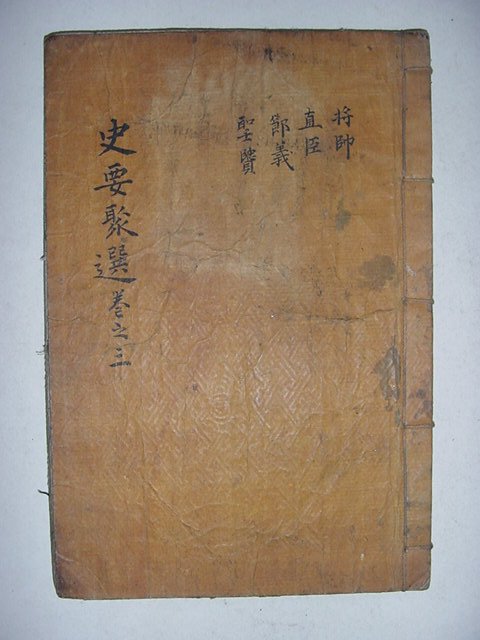 将帥
直臣
節義
聖賢
史要聚選卷之三